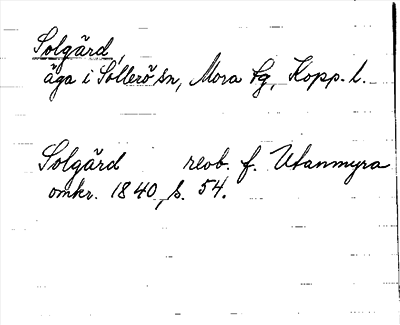 Solgärd,
äga i Sollerö sn, Mora tg, Kopp. l.
Solgärd reob. f. Utanmyra
omkr. 1840, s. 54.